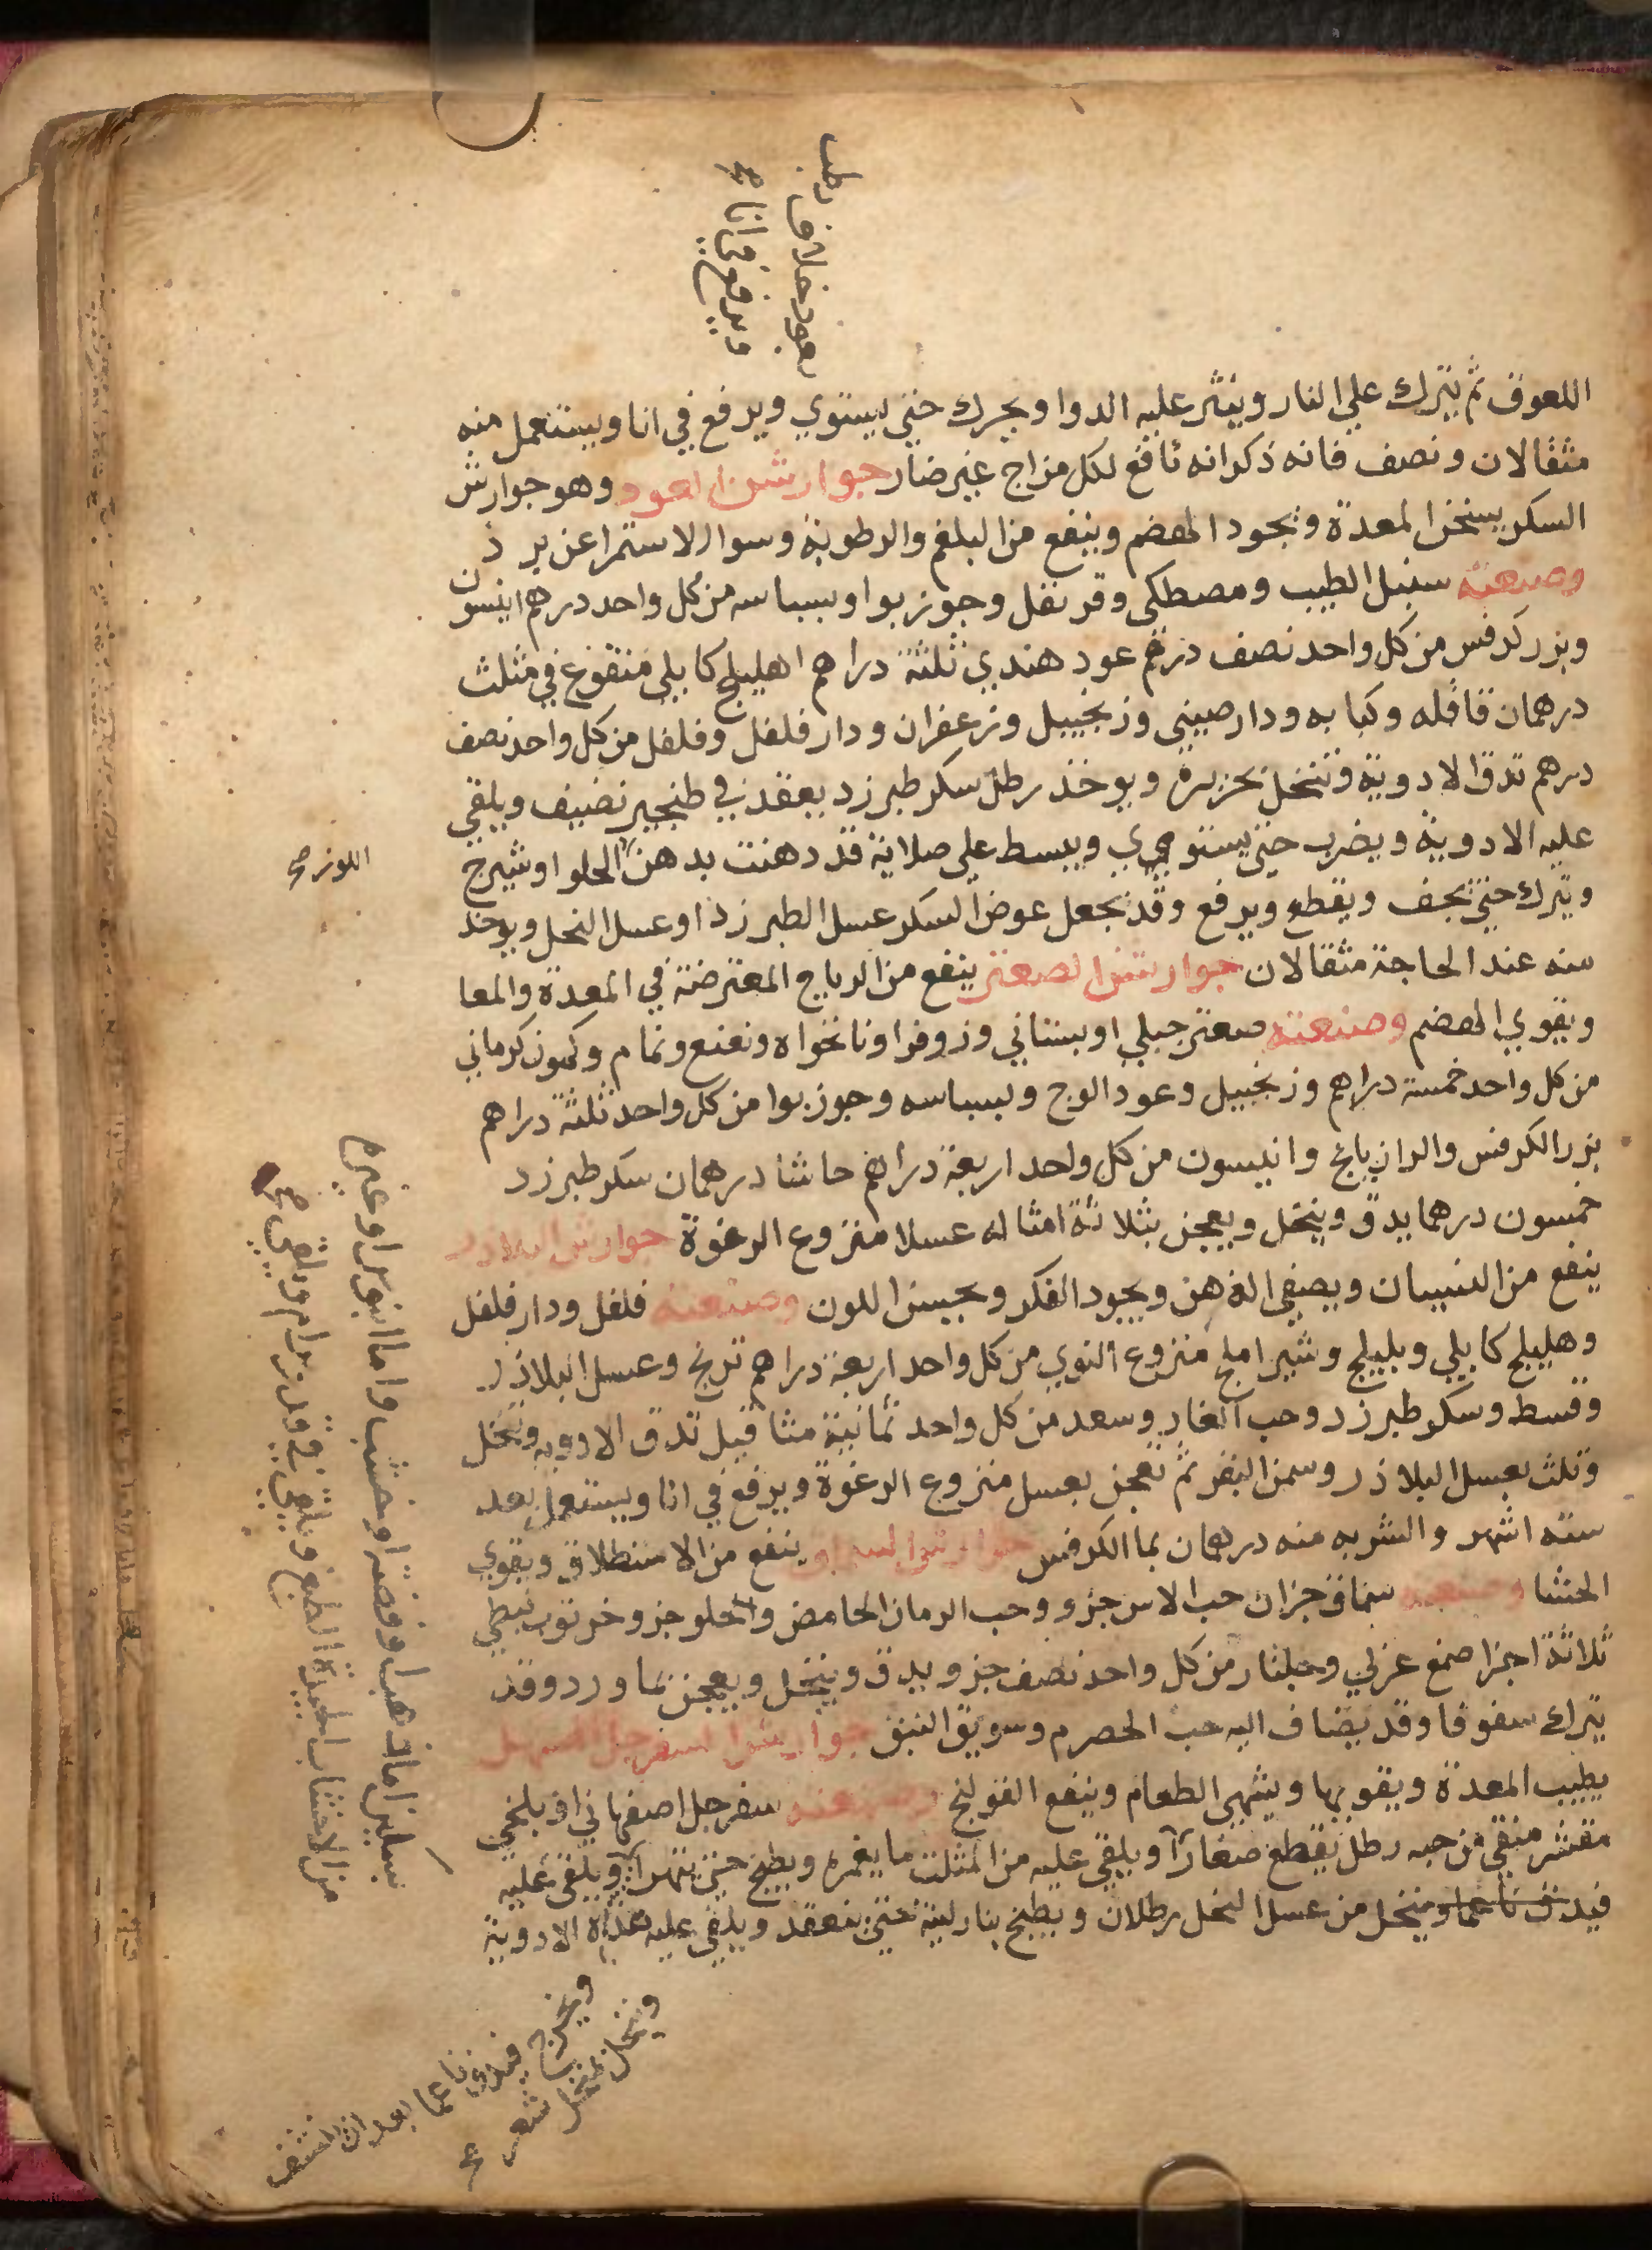 بعود خلاف رطب
ويرفع في انا صح
اللعوق ثم يترك علي النار وينثر عليه الدوا ويحرك حتي يستوي ويرفع في انا ويستعمل منه
مثقالان ونصف فانه ذكر انه نافع لكل مزاج غير ضار جوارشن العود وهو جوارش
السكر يسخن المعدة ويجود الهضم وينفع من البلغم والرطوبة وسوا الاستمرا عن برد
وصنعته سنبل الطيب ومصطكي وقرنفل وجوز بوا وبسباسه من كل واحد درهم انيسون
وبزر كرفس من كل واحد نصف درهم عود هندي ثلثة دراهم اهليلج كابلي منقوع في مثلث
درهمان قاقله وكبابه ودارصيني وزنجبيل وزعفران ودار فلفل وفلفل من كل واحد نصف
درهم تدق الادوية وتنخل بحريرة ويوخذ رطل سكر طبرزد يعقد في طنجير نضيف ويلقي
عليه الادوية ويضرب حتي يستوي ويبسط علي صلاية قد دهنت بدهن الحلو او شيرج
اللوز صح
ويترك حتي يجف ويقطع ويرفع وقد يجعل عوض السكر عسل الطبرزذ او عسل النحل ويوخذ
منه عند الحاجة مثقالان جوارشن الصعتر ينفع من الرياح المعترضة في المعدة والمعا
ويقوي الهضم وصنعته صعتر جبلي او بستاني وزوفرا ونانخواه ونعنع ونمام وكمون كرماني
من كل واحد خمسة دراهم وزنجبيل وعود الوج وبسباسه وجوز بوا من كل واحد ثلثة دراهم
بزر الكرفس والرازيانج وانيسون من كل واحد اربعة دراهم حاشا درهمان سكر طبرزد
خمسون درهما يدق وينخل ويعجن بثلاثة امثاله عسلا منزوع الرغوة جوارش البلادر
ينفع من النسيان ويصفي الذهن ويجود الفكر ويحسن اللون وصنعته فلفل ودار فلفل
وهليلج كابلي وبليلج وشير املج منزوع النوي من كل واحد اربعة دراهم ترنج وعسل البلاذر
وقسط وسكر طبرزد وحب الغار وسعد من كل واحد ثمانية مثاقيل تدق الادويه وتنخل
وتلت بعسل البلاذر وسمن البقر ثم تعجن بعسل منزوع الرغوة ويرفع في انا ويستعمل بعد
سته اشهر والشربه منه درهمان بما الكرفس جوارشن السماق ينفع من الاستطلاق ويقوي
الحشا وصنعته سماق جزان حب الاس جزو وحب الرمان الحامض والحلو جزو خرنوب نبطي
ثلاثة اجزا صمغ عربي وجلنار من كل واحد نصف جزو يدق وينخل ويعجن بما ورد وقد
يترك سفوفا وقد يضاف اليه حب الحصرم وسويق النبق جوارشن السفرجل المسهل
يطيب المعدة ويقويها ويشهي الطعام وينفع القولنج وصنعته سفرجل اصفهاني او بلخي
مقشر منقي من حبه رطل يقطع صغارا ويلقي عليه من المثلث ما يغمره ويطبخ حتي يتهرا ويلقي عليه
فيدق ناعما وينخل من عسل النحل رطلان ويطبخ بنار لينة حتي ينعقد ويلقي عليه هذه الادوية
بسكين اما ذهبا وفضة او خشب واما ابنوس او غيره
من الاخشاب الجيدة الطبخ ويلقي في قدر برام ويلقي صح
ويخرج فيدق ناعما بعد ان ينشف
وينخل بمنخل شعر صح